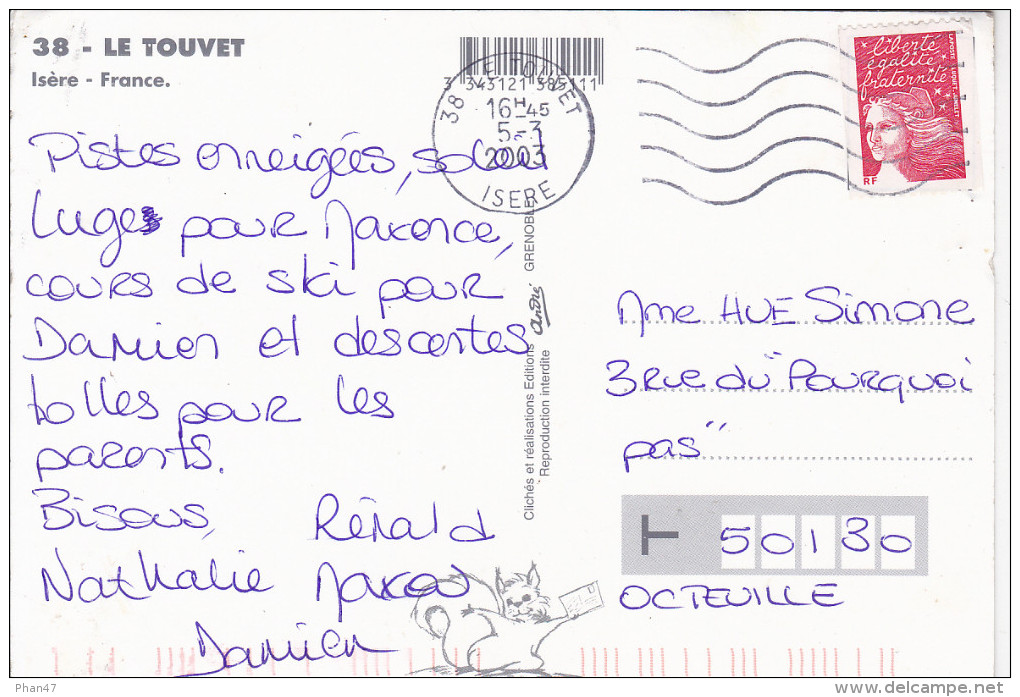 38 - LE TOUVET
Isère - France.
3 343121 385111
38 LE TOUVET
16H45
5-3
2003
ISERE
liberté
égalité
fraternité
RF
LA POSTE
Pistes enneigées, soleil
Luges pour Maxence,
cours de ski pour
Damien et descentes
folles pour les
parents.
Bisous,
Rénald
Nathalie
Damien
Clichés et réalisations Editions André GRENOBLE
Reproduction interdite
Mme HUE Simone
3 Rue du "Pourquoi
pas"
50130
OCTEVILLE
Phan47
delcampe.net